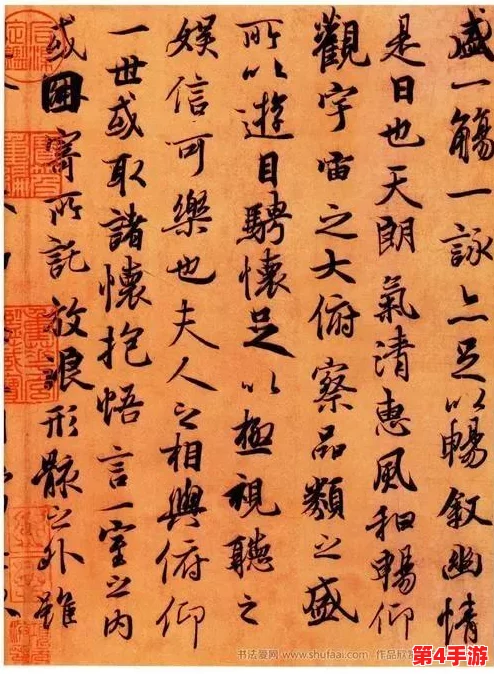 盛一觴一詠亦足以暢叙幽情
是日也天朗氣清惠風和暢仰
觀宇宙之大俯察品類之盛
所以遊目騁懷足以極視聽之
娛信可樂也夫人之相與俯仰
一世或取諸懷抱悟言一室之内
或因寄所託放浪形骸之外雖
书法爱网 www.shufaai.com 作品欣
第4手游